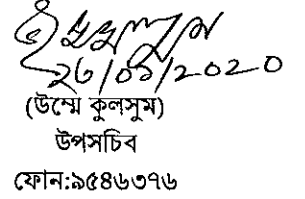 ২৬/০১/২০২০
(উম্মে কুলসুম)
উপসচিব
ফোন:৯৫৪৬৩৭৬